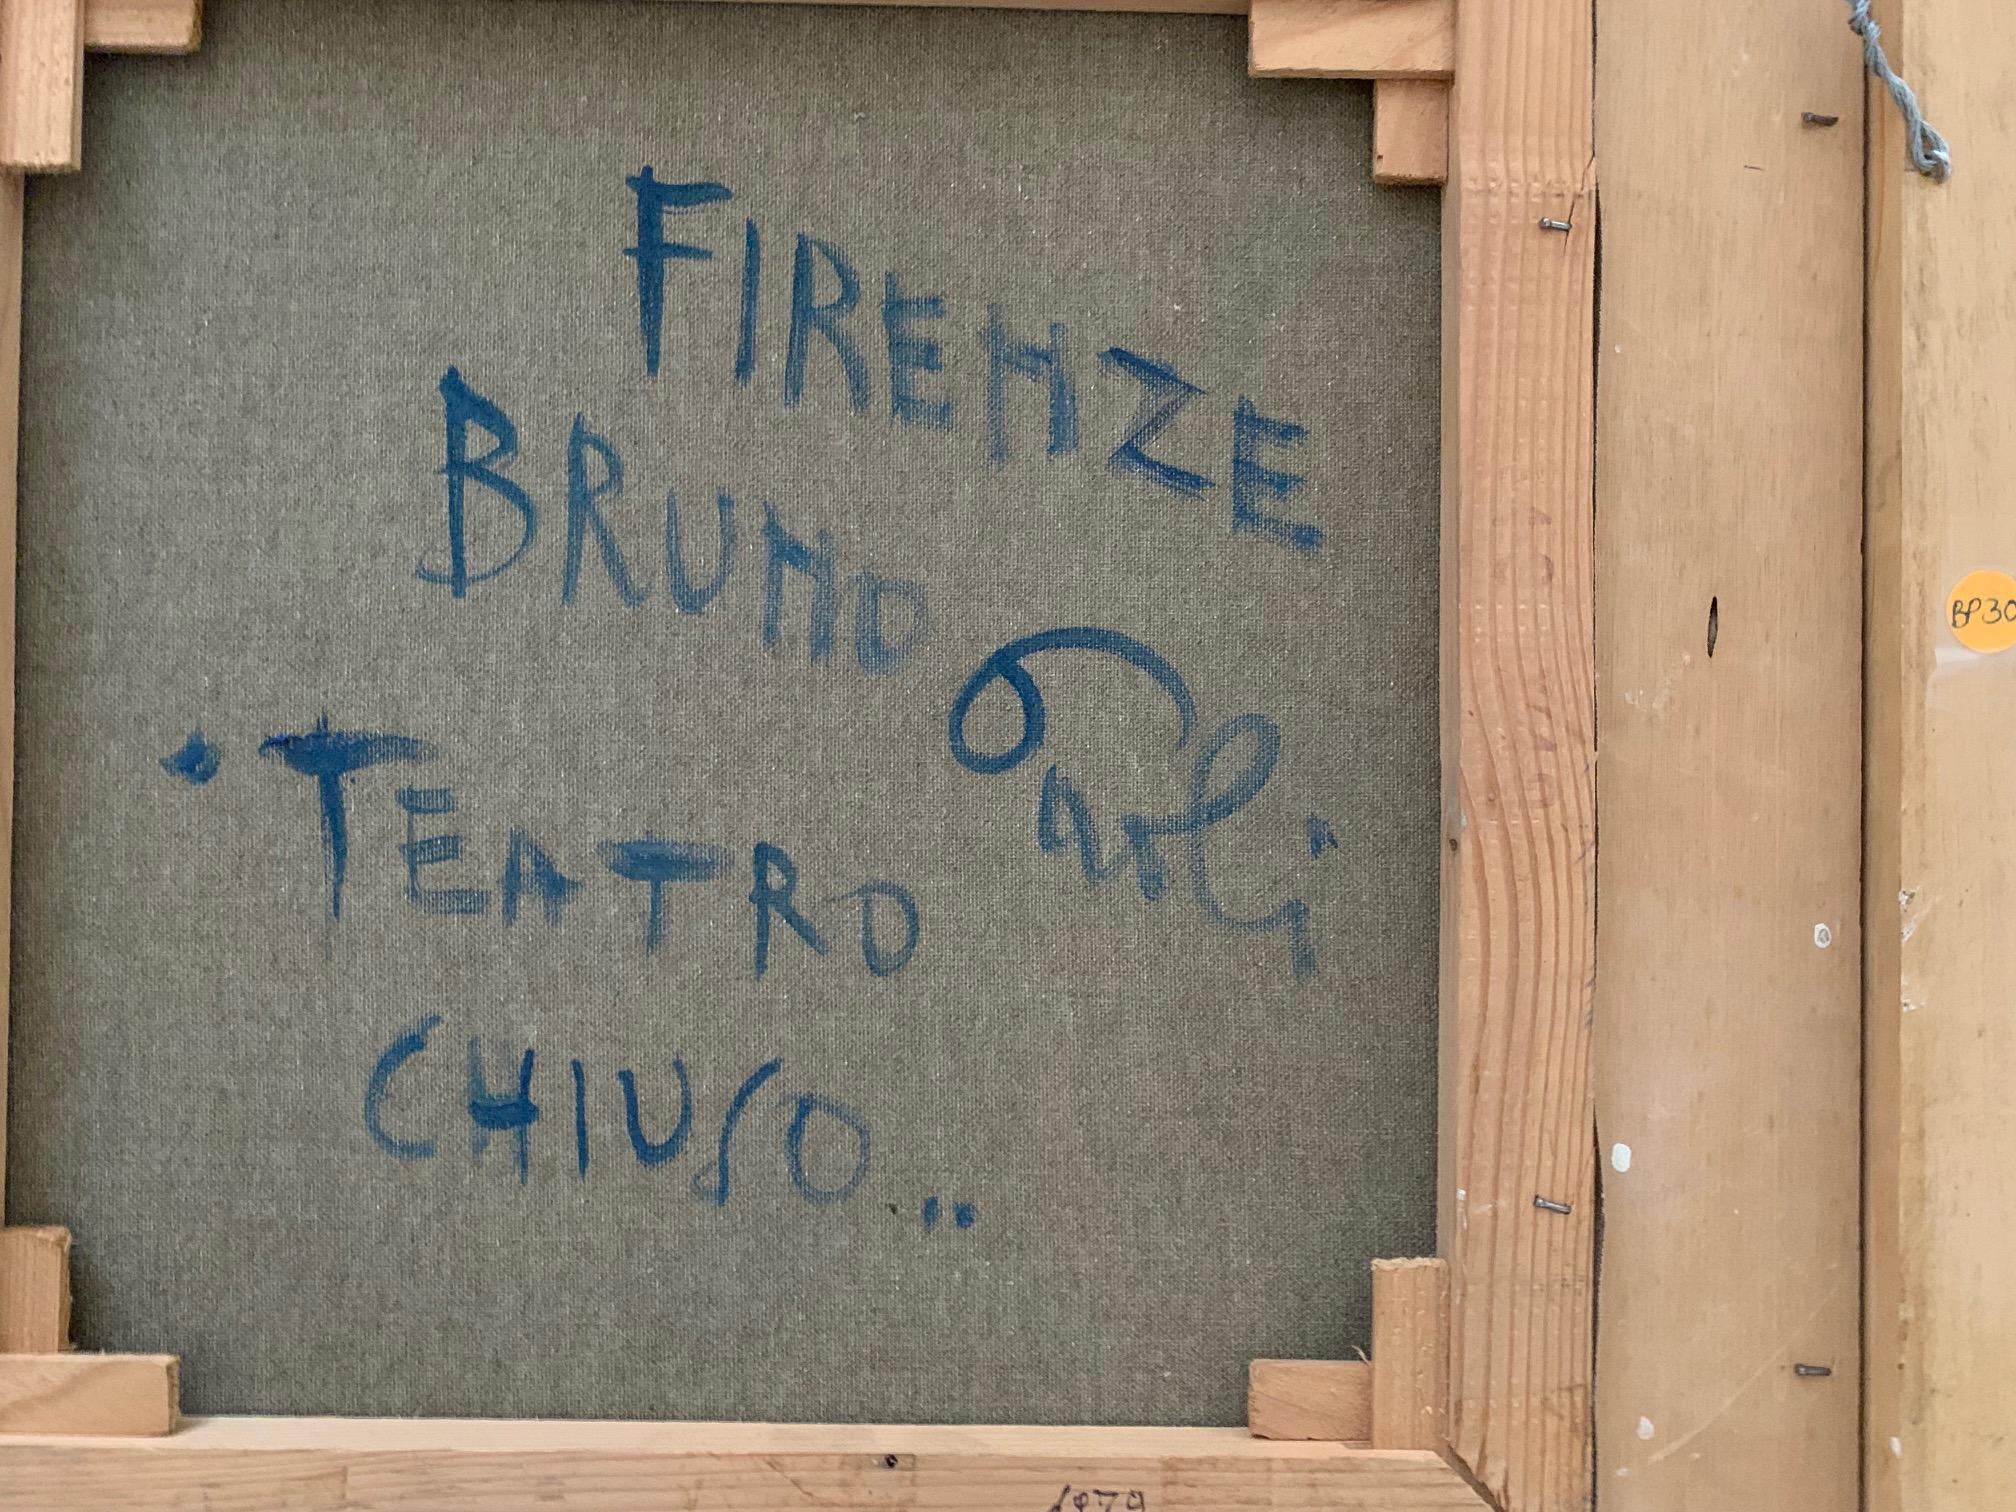 FIRENZE
BRUNO
Paoli
"TEATRO
CHIUSO...
BP30
1979